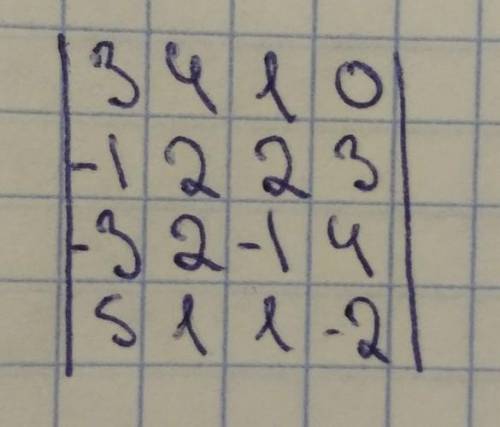 3 4 1 0
-1 2 2 3
-3 2 -1 4
5 1 1 -2